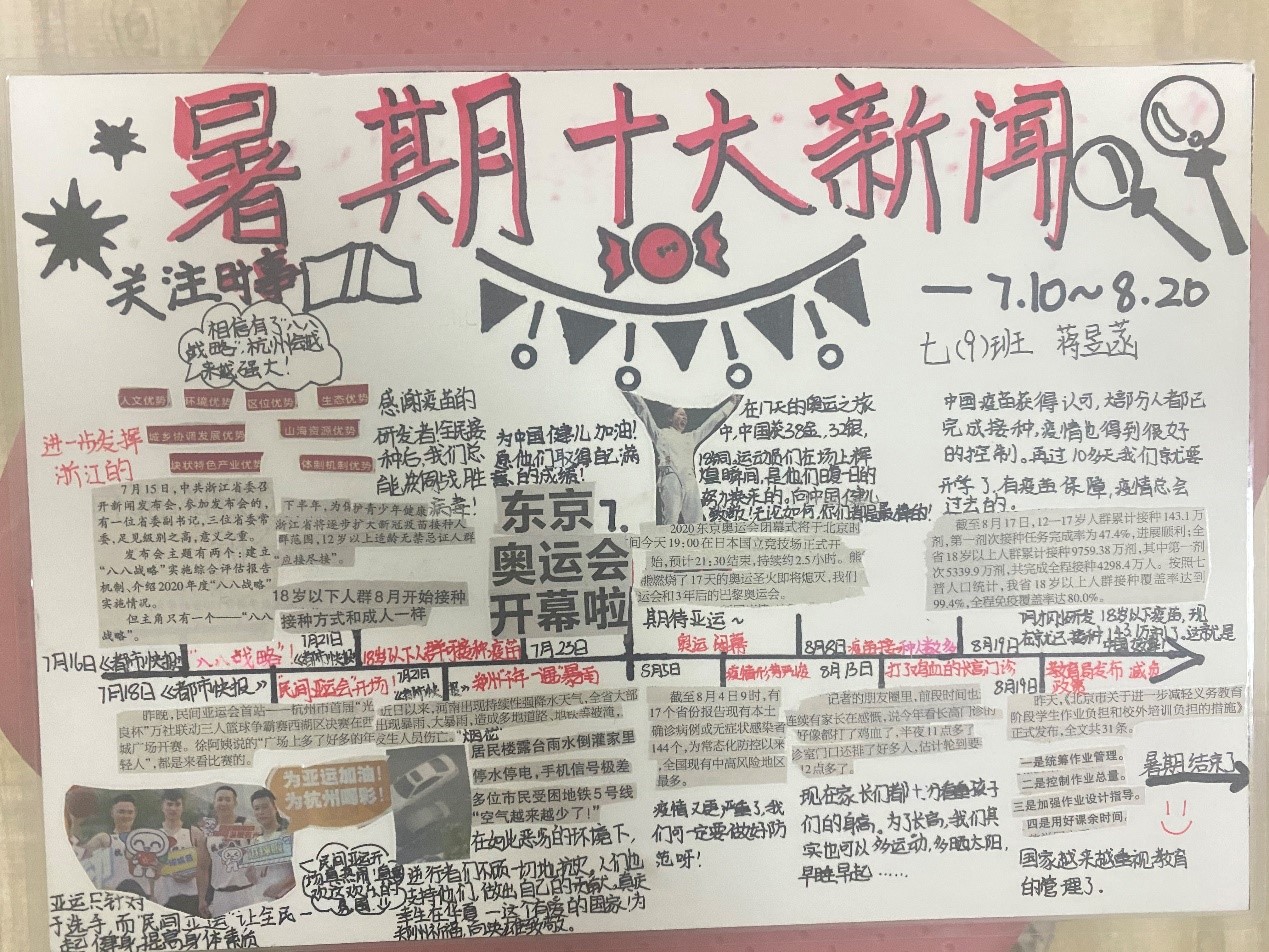 暑期十大新闻
关注时事
一7.10~8.20
七(9)班 蒋昱菡
相信有了"八八
战略",杭州会越
来越强大!
人文优势 环境优势 区位优势 生态优势
城乡协调发展优势 山海资源优势
块状特色产业优势 体制机制优势
进一步发挥
浙江的
7月15日,中共浙江省委召
开新闻发布会,参加发布会的,
有一位省委副书记,三位省委常
委,足见级别之高,意义之重。
发布会主题有两个:建立
“八八战略”实施综合评估报告
机制、介绍2020年度“八八战略”
实施情况。
但主角只有一个——“八八
战略”。
感谢疫苗的
研发者!全民接
种后,我们总
能共同战胜
病毒!
下半年,为保护青少年健康
浙江省将逐步扩大新冠疫苗接种人
群范围,12岁以上适龄无禁忌证人群
“应接尽接”。
18岁以下人群8月开始接种
接种方式和成人一样
为中国健儿加油!
愿他们取得自己满
意的成绩!
东京
奥运会
开幕啦
在17天的奥运之旅
中,中国获38金,32银,
18铜,运动员们在场上辉
煌瞬间,是他们夏日的
努力换来的。向中国健儿
致敬!无论如何,你们都是最棒的!
2020东京奥运会闭幕式将于北京时
间今天19:00在日本国立竞技场正式开
始,预计21:30结束,持续约2.5小时。熊
熊燃烧了17天的奥运圣火即将熄灭,我们
运会和3年后的巴黎奥运会。
期待亚运~
中国疫苗获得认可,大部分人都已
完成接种,疫情也得到很好
的控制。再过10多天我们就要
开学了,有疫苗保障,疫情总会
过去的。
截至8月17日,12—17岁人群累计接种143.1万
剂,第一剂次接种任务完成率为47.4%,进展顺利;全
省18岁以上人群累计接种9759.38万剂,其中第一剂
次5339.9万剂,共完成全程接种4298.4万人。按照七
普人口统计,我省18岁以上人群接种覆盖率达到
99.4%,全程免疫覆盖率达80.0%。
刚刚研发18岁以下疫苗,现
在就已接种143.1万剂了,这就是
中国效率!
7月16日《都市快报》 "八八战略"! 7月21日《都市快报》 18岁以下人群可接种疫苗 7月23日 奥运闭幕 8月8日 疫苗接种人数多 8月19日
7月18日《都市快报》 "民间亚运会"开场 7月21日《都市快报》 郑州千年一遇"暴雨 8月5日 疫情形势严峻 8月13日 打了鸡血的长高门诊 8月19日 教育局发布减负
政策
昨晚,民间亚运会首站——“杭州市首
良杯”万社联动三人篮球争霸赛西湖区决赛在西
城广场开赛。徐阿姨说的“广场上多了好多的年
轻人”,都是来看比赛的。
近日以来,河南出现持续性强降水天气,全省大部
出现暴雨、大暴雨,造成多地道路、地铁等被淹,
发生人员伤亡。“烟花”
居民楼露台雨水倒灌家里
停水停电,手机信号极差
多位市民受困地铁5号线
“空气越来越少了!”
为亚运加油!
为杭州喝彩!
在如此恶劣的环境下,
逆行者们不顾一切地救灾,人们也
支持他们,做出自己的贡献。真庆
幸生在华夏—这个有爱的国家!为
郑州祈福,向英雄致敬。
亚运只针对
于选手,而"民间亚运"让全民一
起健身,提高身体素质
截至8月4日9时,有
17个省份报告现有本土
确诊病例或无症状感染者
144个,为常态化防控以来
全国现有中高风险地区
最多。
疫情又更严重了,我
们可一定要做好防
范呀!
记者的朋友圈里,前段时间也
连续有家长在感慨,说今年看长高门诊的
好像都打了鸡血了,半夜11点多了
诊室门口还排了好多人,估计轮到要
12点多了。
现在家长们都十分看重孩子
们的身高。为了长高,我们其
实也可以多运动,多晒太阳,
早睡早起……
昨天,《北京市关于进一步减轻义务教育
阶段学生作业负担和校外培训负担的措施》
正式发布,全文共31条。
一是统筹作业管理。
二是控制作业总量。
三是加强作业设计指导。
四是用好课余时间,
暑期结束了
国家越来越重视教育
的管理了.